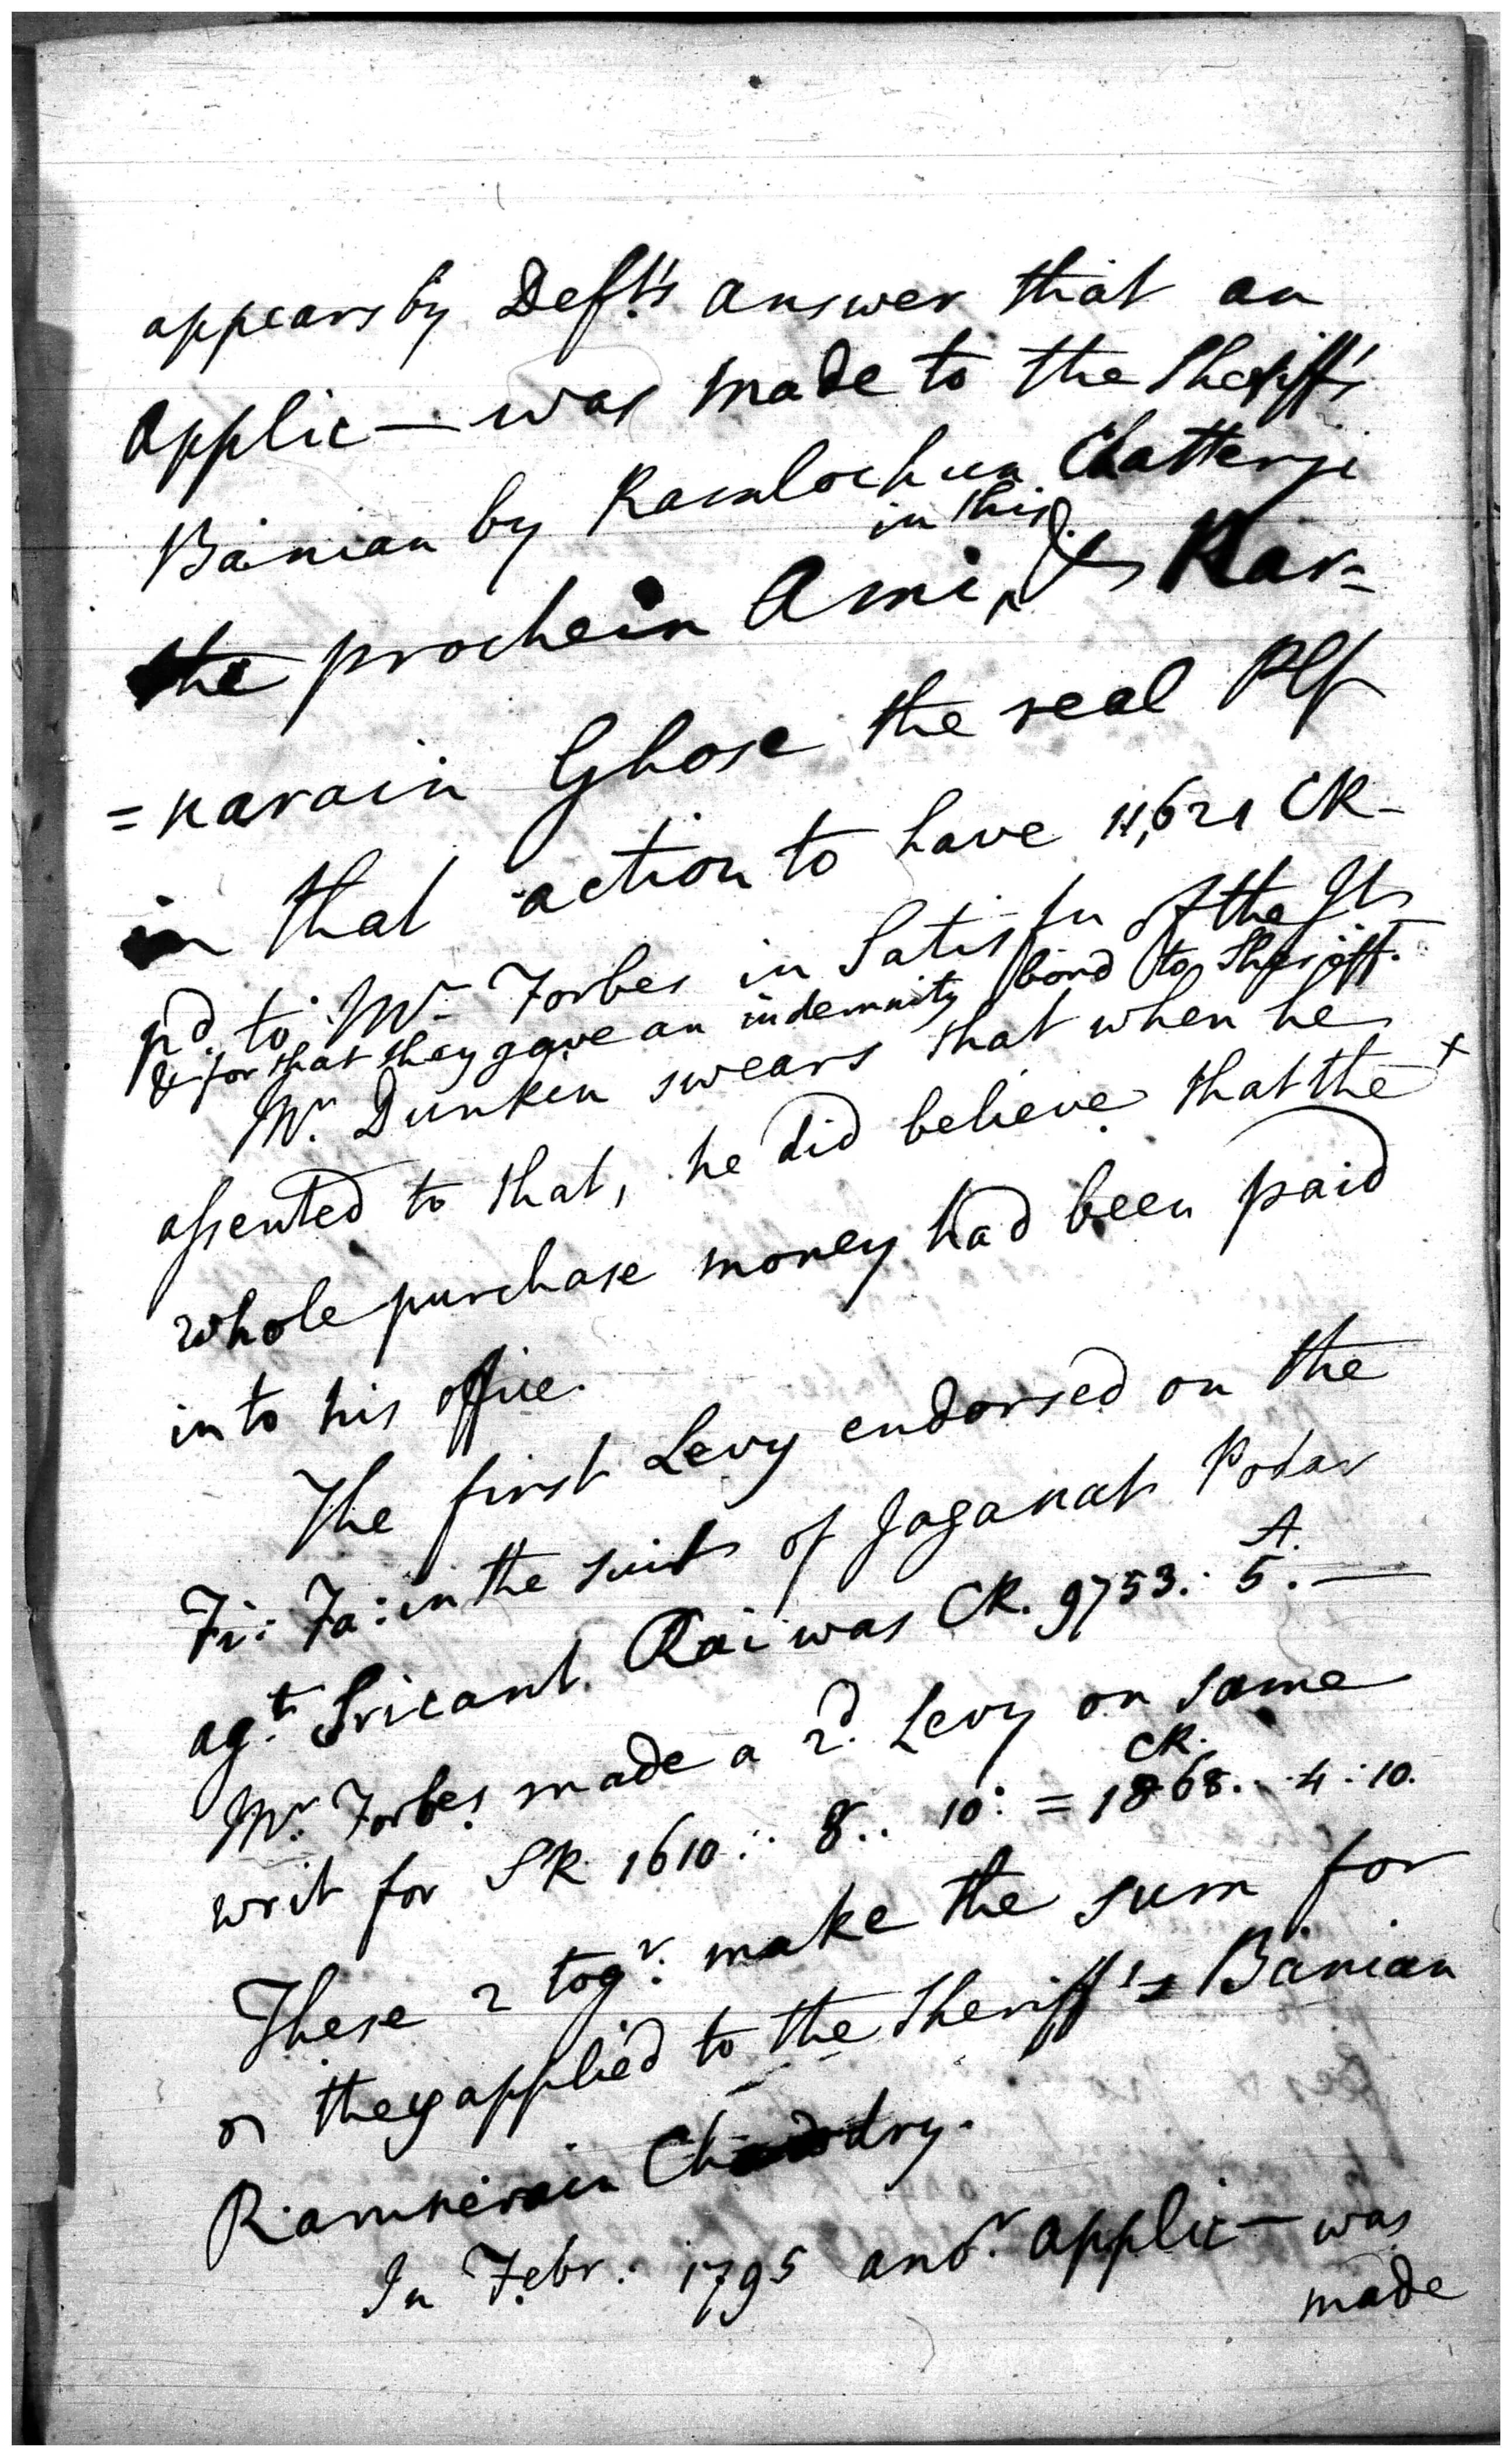 appears by Def.ts answer that an
applic— was made to the Sheriff's
Banian by Ramlochun Chatterji
in this
the prochein Ami, & Kar=
=narain Ghose the real Plf
in that action to have 11,621 CR-
pd. to Mr. Forbes in Satisfn of the
& for that they gave an indemnity bond to Sheriff.
Mr. Dunkin swears that when he
assented to that, he did believe that the +
whole purchase money had been paid
into his office.
The first Levy endorsed on the
Fi: Fa: in the suit of Jaganat Podar
A.
agt. Sricant Rai was CR. 9753: 5. —
Mr. Forbes made a 2d. Levy on same
CR.
writ for SR 1610: 8.. 10: = 1868.. 4: 10.
These 2 togr. make the sum for
they applied to the Sheriff's Banian
Ramnerain Chowdry.
In Febr. 1795 anor. applic— was
made